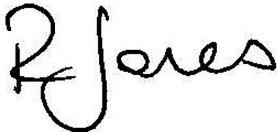 R Jones